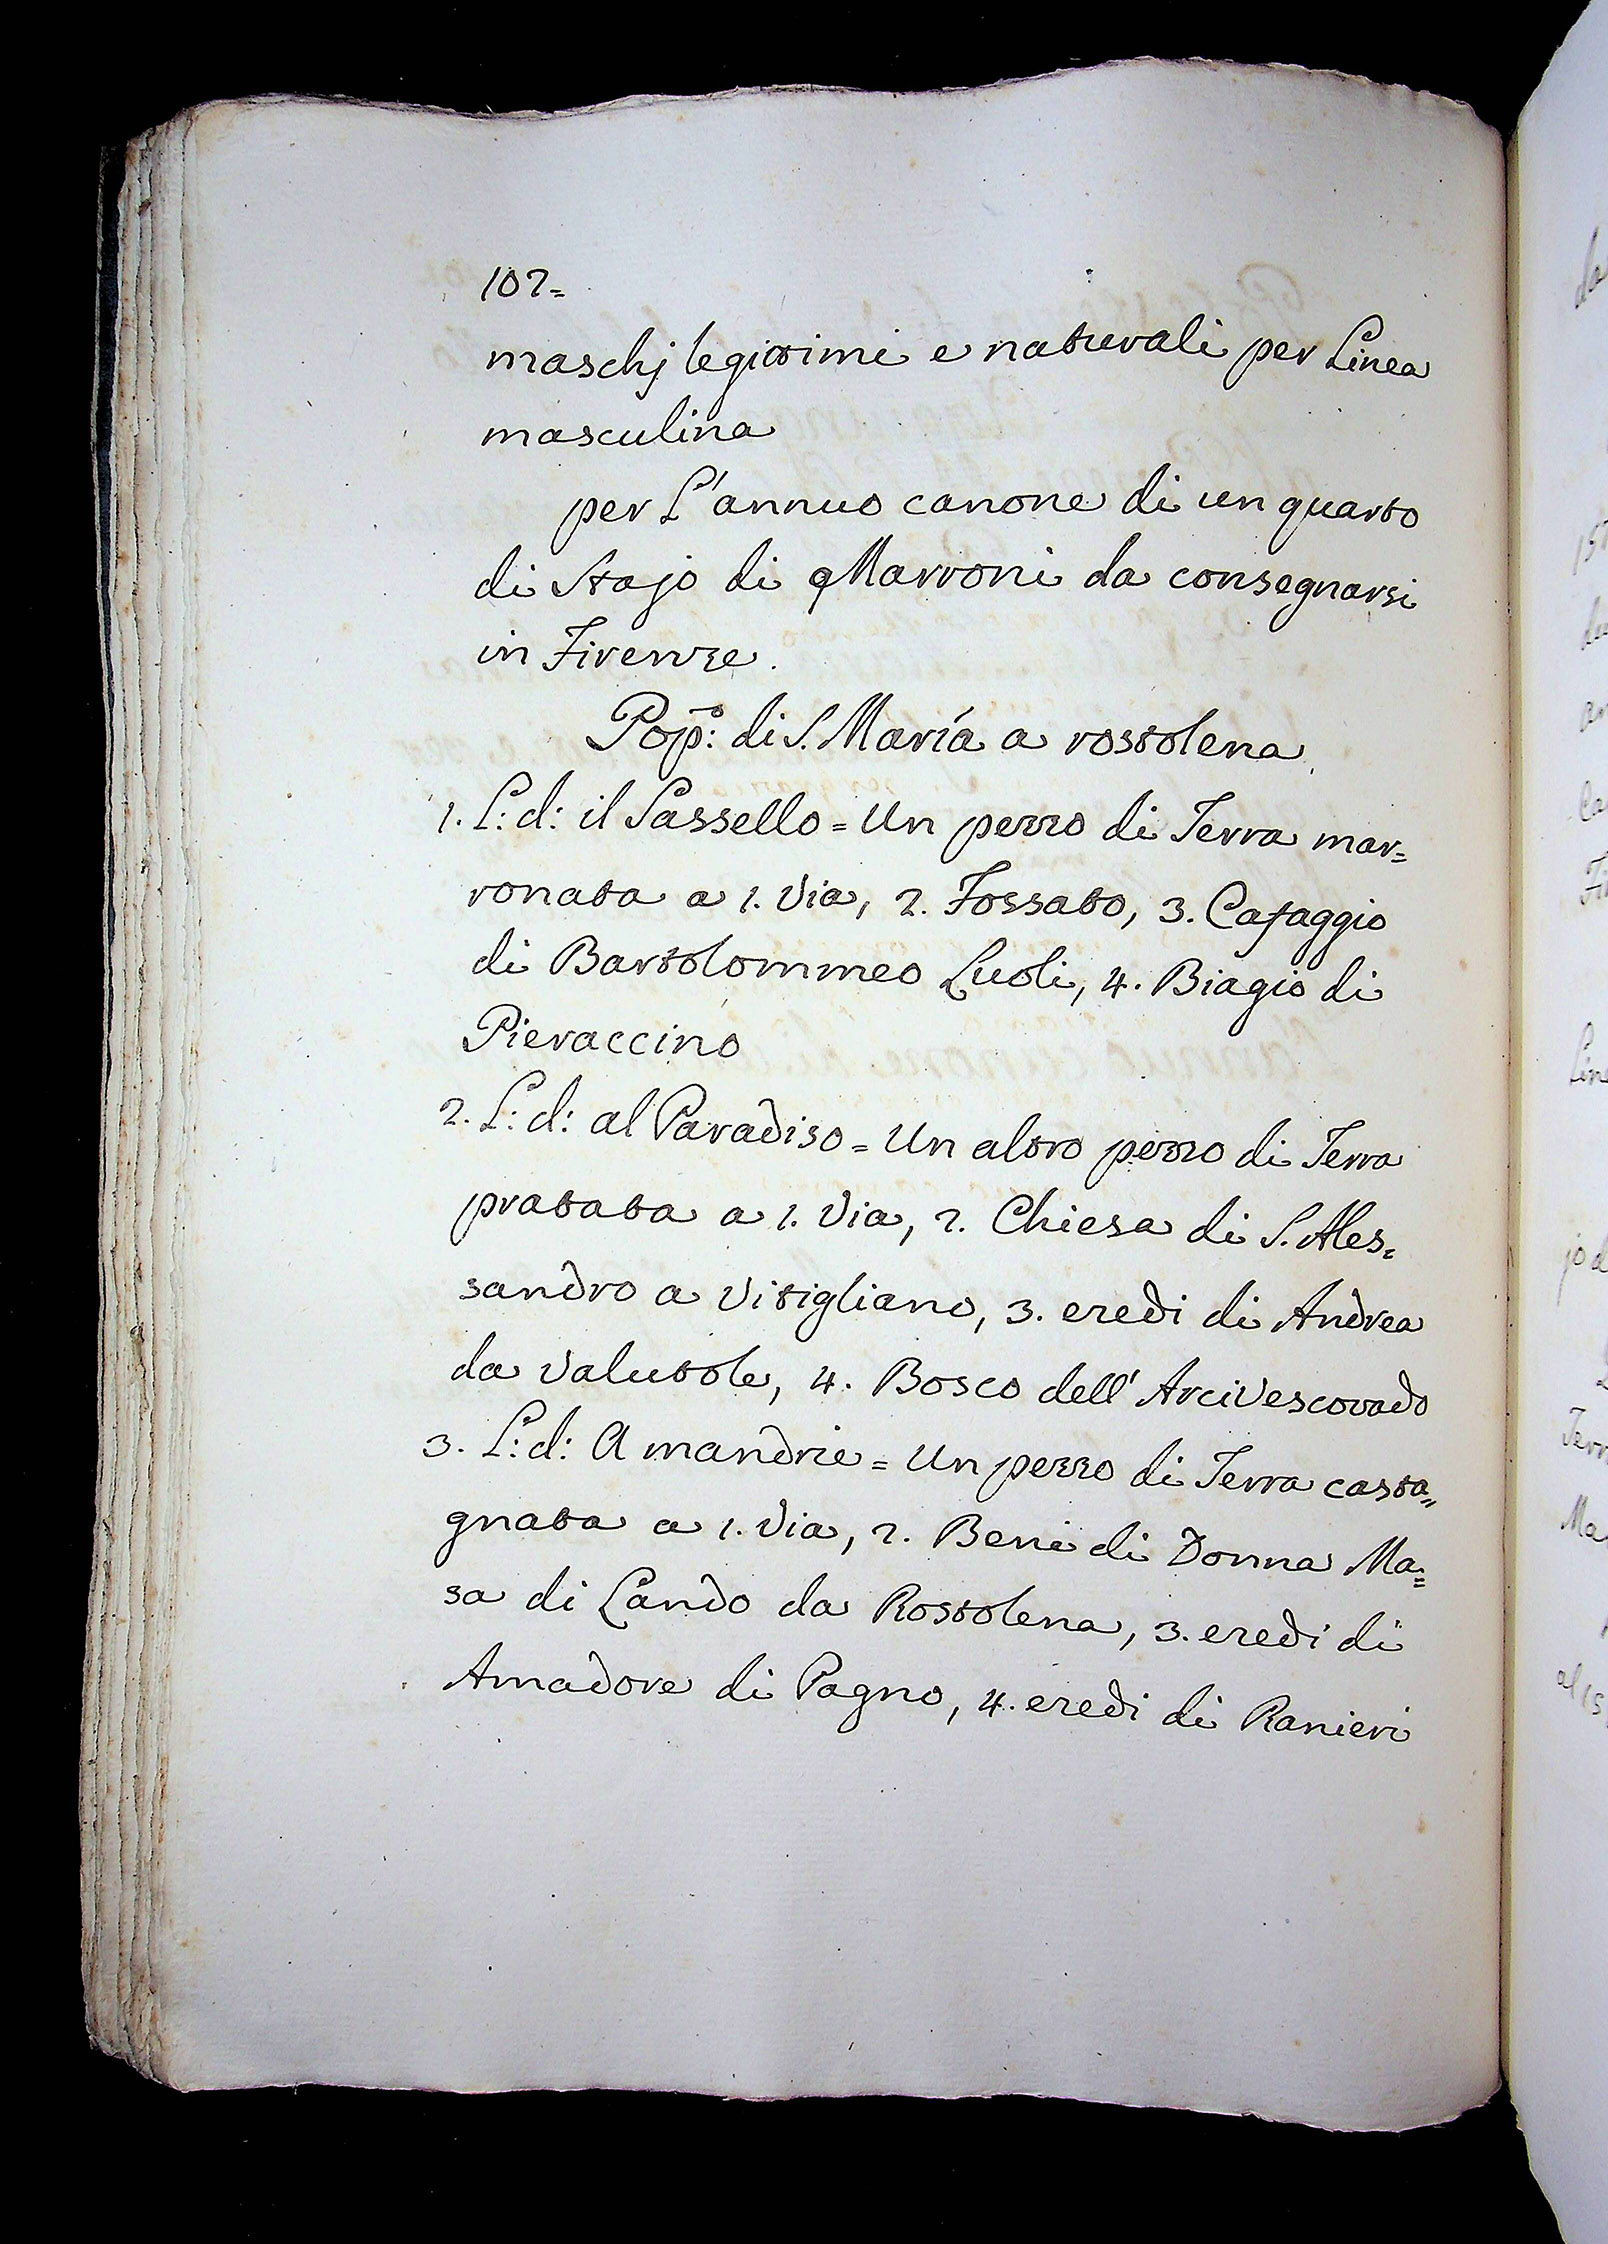 102=
maschj legittimi e naturali per Linea
masculina
per L'annuo canone di un quarto
di Stajo di Marroni da consegnarsi
in Firenze.
Pop̃o: di S. María a rostolena
1. L: d: il Sassello = Un pezzo di Terra mar=
ronata a 1. Via, 2. Fossato, 3. Cafaggio
di Bartolommeo Luoli, 4. Biagio di
Pieraccino
2. L: d: al Paradiso = Un altro pezzo di Terra
pratata a 1. Via, 2. Chiesa di S. Ales=
sandro a Vitigliano, 3. eredi di Andrea
da Valutole, 4. Bosco dell' Arcivescovado
3. L: d: A mandrie = Un pezzo di Terra casta=
gnata a 1. Via, 2. Beni di Donna Ma=
sa di Lando da Rostolena, 3. eredi di
Amadore di Pagno, 4. eredi di Ranieri